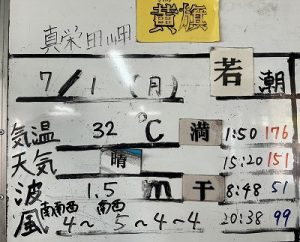 黄旗
真栄田岬
7/1(月) 若潮
気温 32 ℃ 満 1:50 176
天気 晴 15:20 151
波 1.5 m 干 8:48 51
風 南南西 4~ 南西 5~4~4 20:38 99